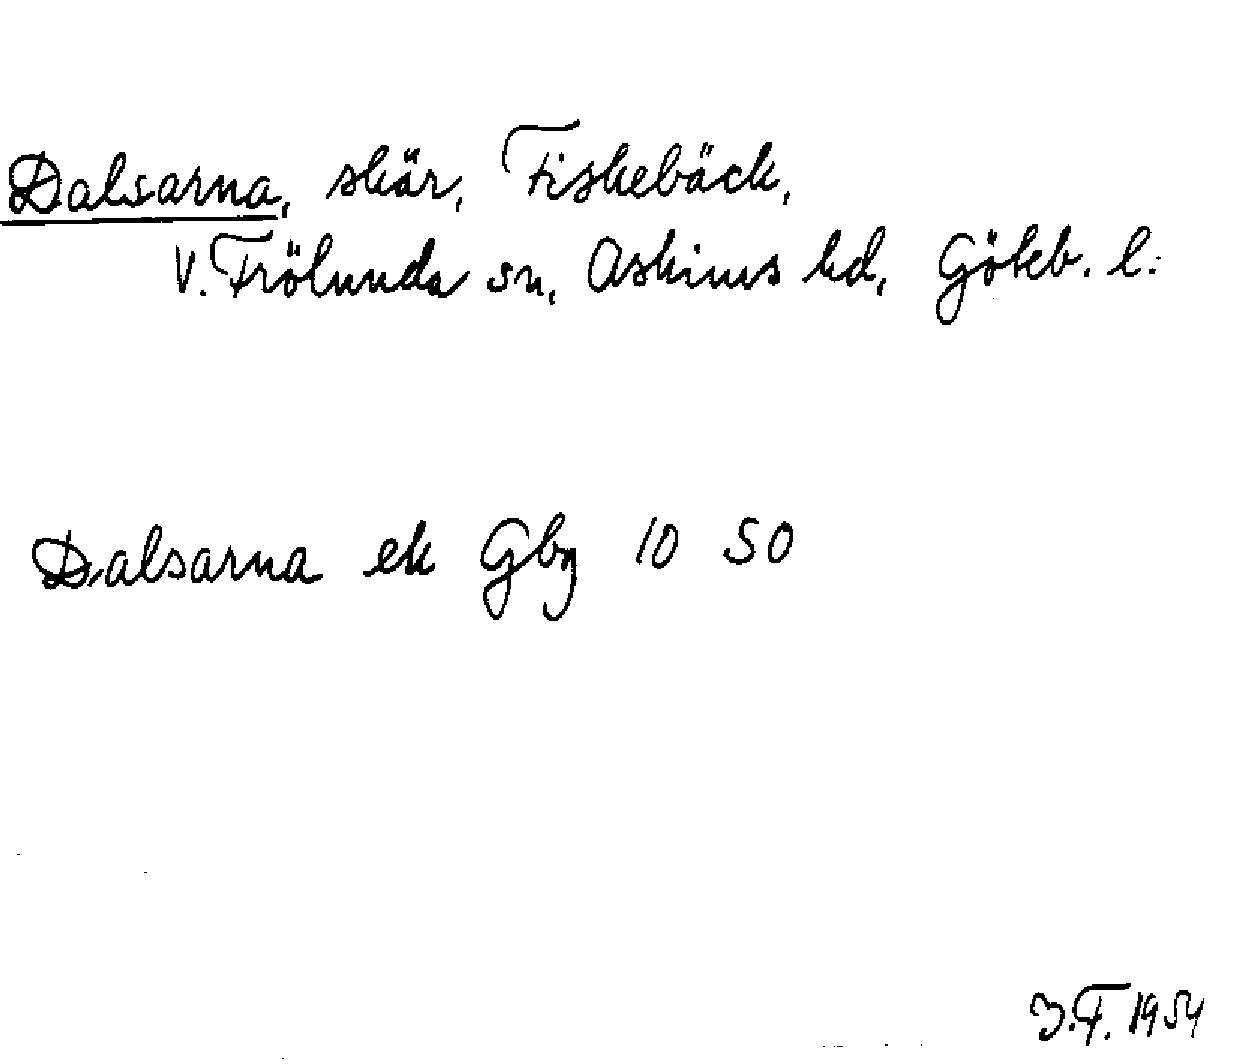 Dalsarna, skär, Fiskebäck,
V. Frölunda sn, Askims hd, Götebo. l.
Dalsarna ek Gbg 10 SO
J.F. 1954